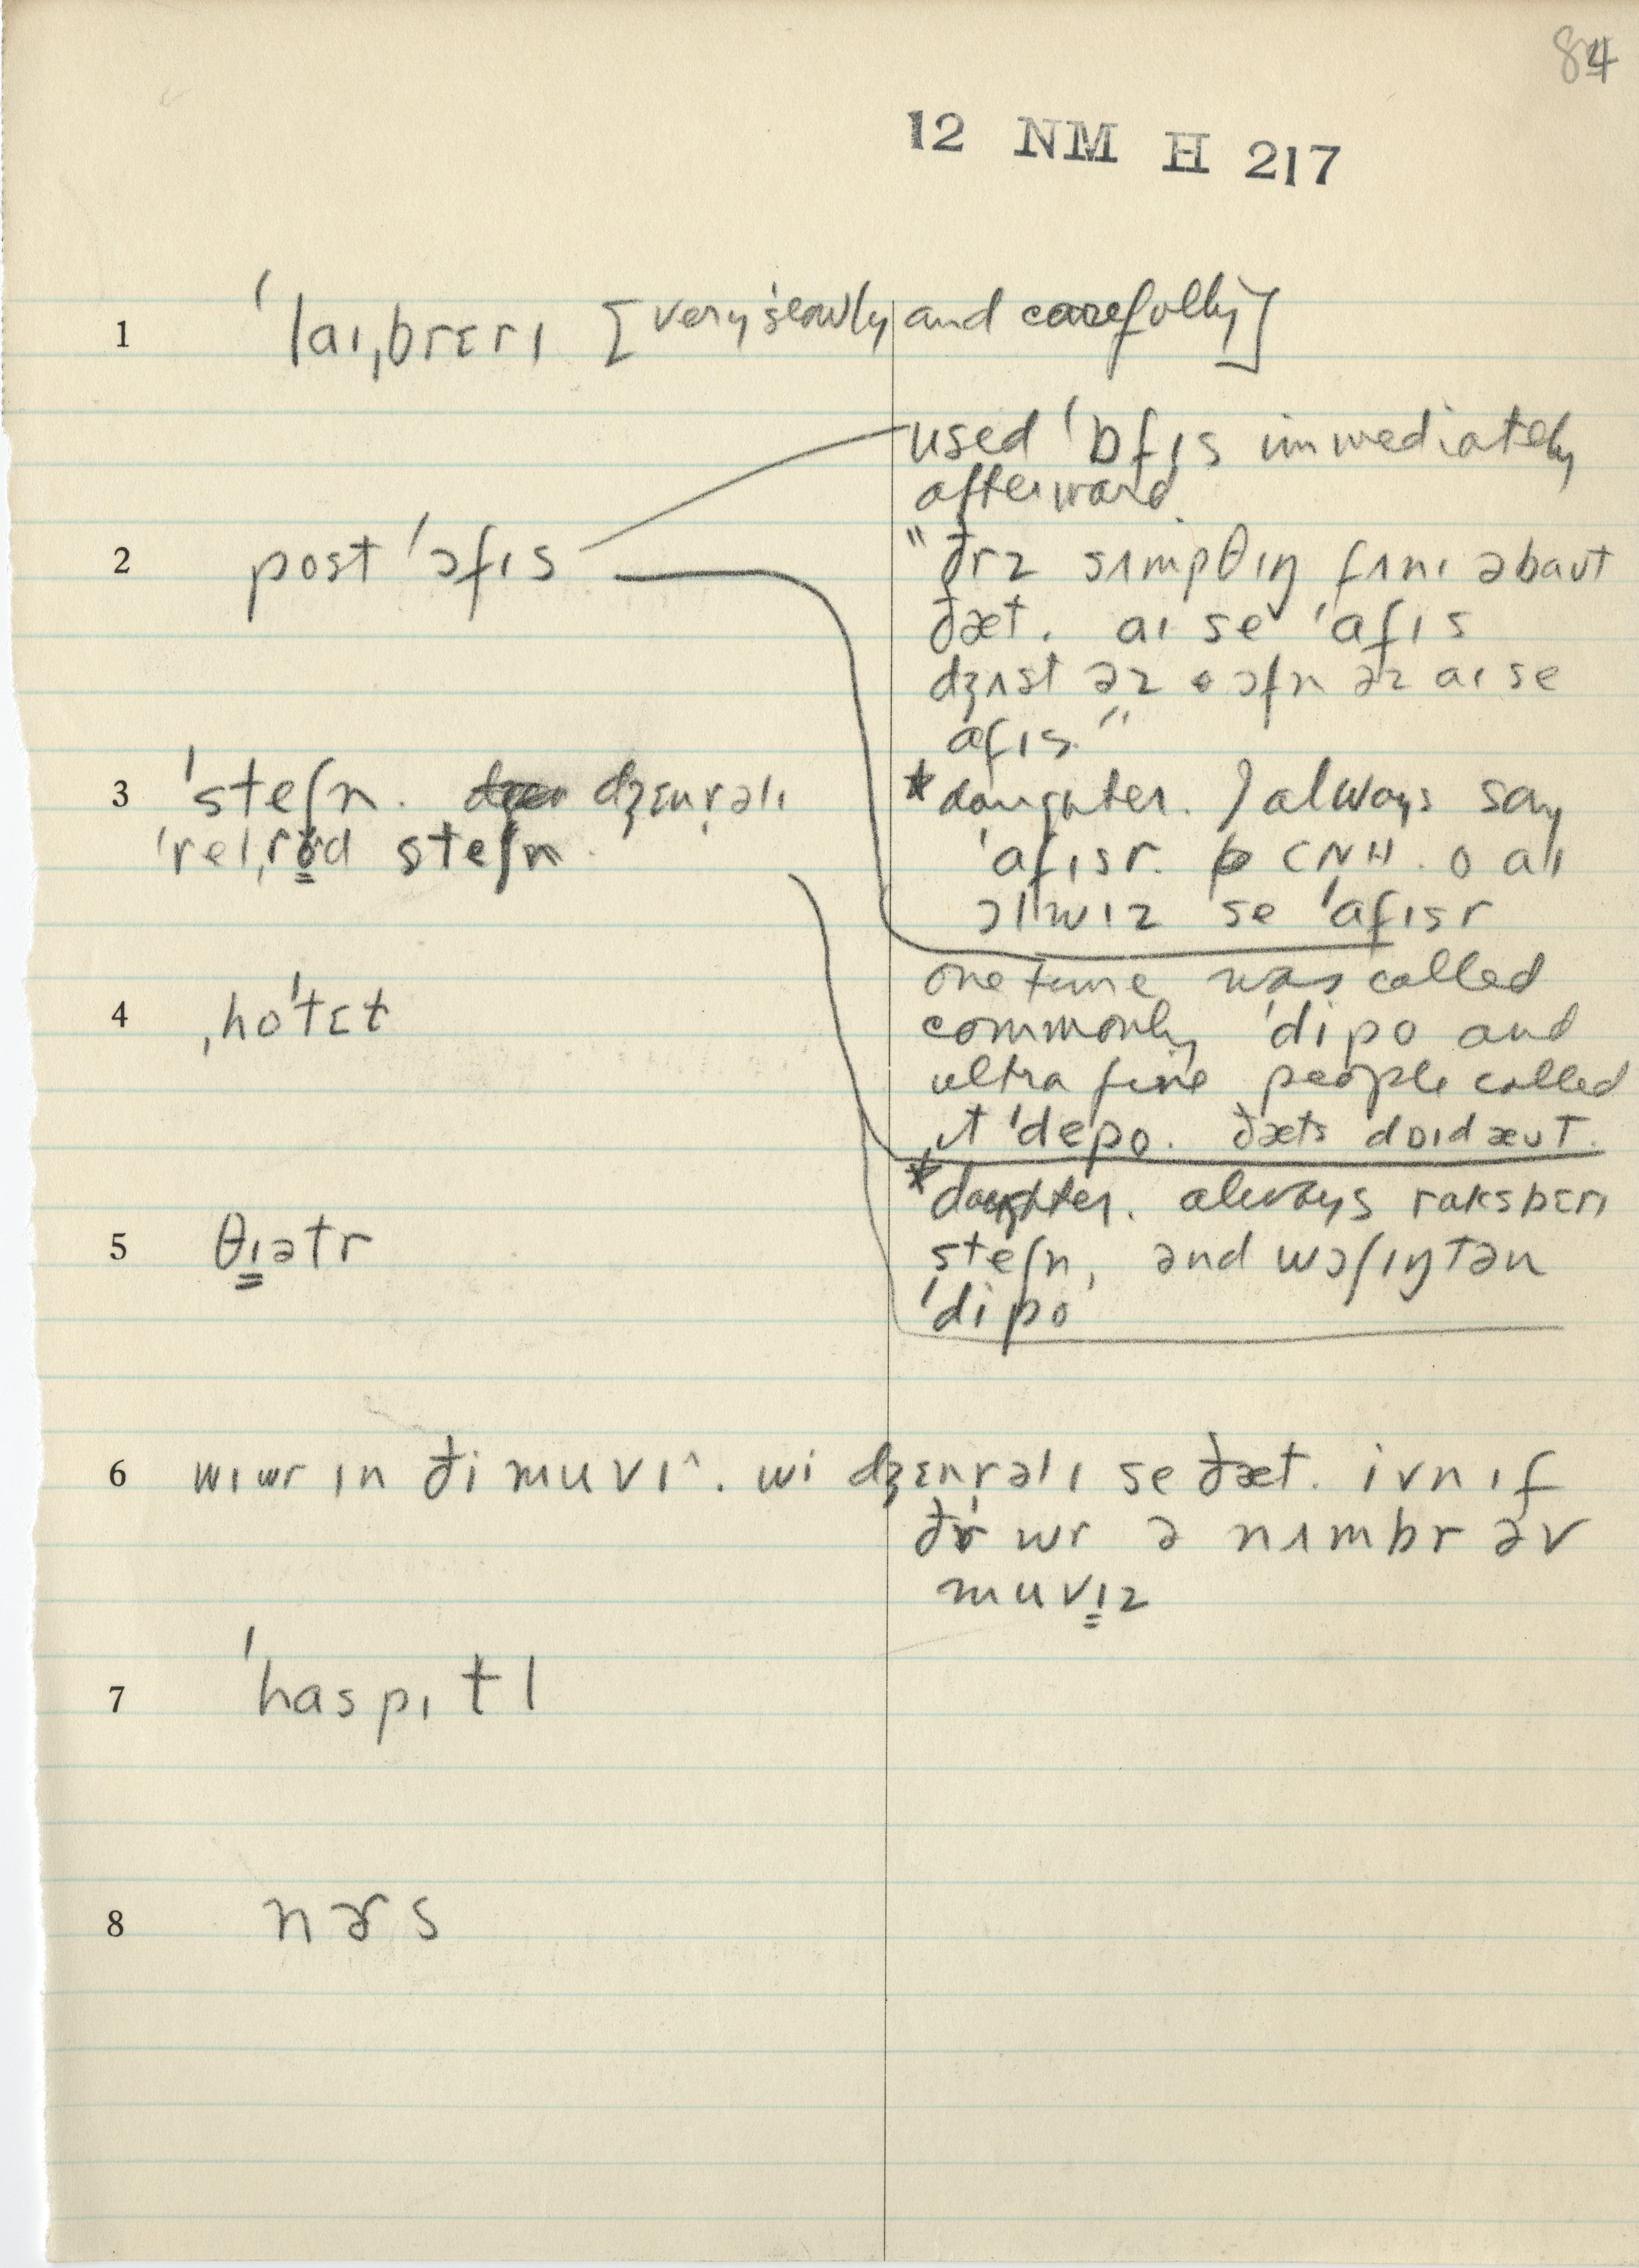 84
12 NM H 217
1 ˈlaɪˌbrɛrɪ [very slowly and carefully]
used ˈɒfɪs immediately
afterward.
2 post ˈɔfɪs
"ðrz sʌmpθɪŋ fʌnɪ əbaʊt
ðæt. aɪ se ˈafɪs
dʒʌst əz ɔfn əz aɪ se
afɪs."
3 ˈsteʃn. dʒɛnrəlɪ
ˈrelˌrod steʃn.
*daughter. I always say
ˈafɪsr. CNH. o aɪ
ɔlwɪz se ˈafɪsr
one time was called
4 ˌhoˈtɛt
commonly ˈdipo and
ultra fine people called
it ˈdepo. ðæts dɒɪdæʊt.
*daughter. always raksbɛrɪ
5 θɪətr
steʃn, and wɔʃɪŋtən
ˈdipo
6 wɪwr ɪn ði muvɪ^. wi dʒɛnrəlɪ se ðæt. ivn ɪf
ðr wr ə nʌmbr əv
muvɪz
7 ˈhaspɪtl
8 nɚs